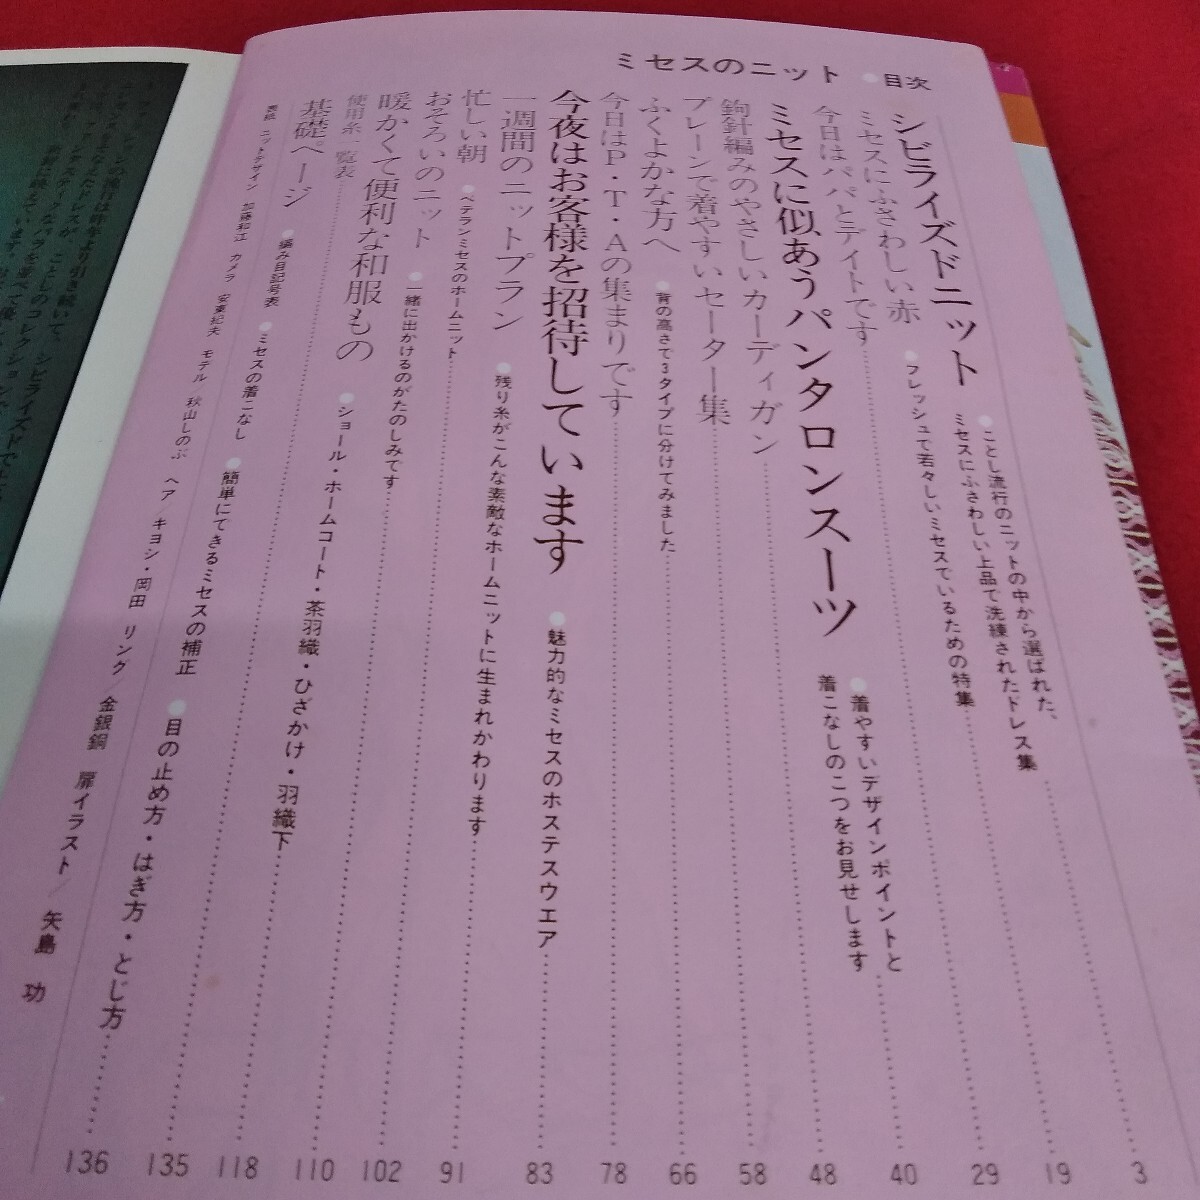 ミセスのニット ●目次
シビライズドニット
●ことし流行のニットの中から選ばれた、
ミセスにふさわしい上品で洗練されたドレス集
3
ミセスにふさわしい赤
●フレッシュで若々しいミセスでいるための特集
19
今日はパパとデイトです
29
ミセスに似あうパンタロンスーツ
●着やすいデザインポイントと
着こなしのこつをお見せします
40
鉤針編みのやさしいカーディガン
48
プレーンで着やすいセーター集
58
ふくよかな方へ
●背の高さで3タイプに分けてみました
66
今日はP・T・Aの集まりです
78
今夜はお客様を招待しています
●魅力的なミセスのホステスウエア
83
一週間のニットプラン
●残り糸がこんな素敵なホームニットに生まれかわります
91
忙しい朝
●ベテランミセスのホームニット
102
おそろいのニット
●一緒に出かけるのがたのしみです
110
暖かくて便利な和服もの
●ショール・ホームコート・茶羽織・ひざかけ・羽織下
118
使用糸一覧表
135
基礎ページ
●編み目記号表
●ミセスの着こなし
●簡単にできるミセスの補正
●目の止め方・はぎ方・とじ方
136
表紙 ニットデザイン 加藤和江 カメラ 安東紀夫 モデル 秋山しのぶ ヘア/キヨシ・岡田 リング 金銀銅 扉イラスト/矢島 功